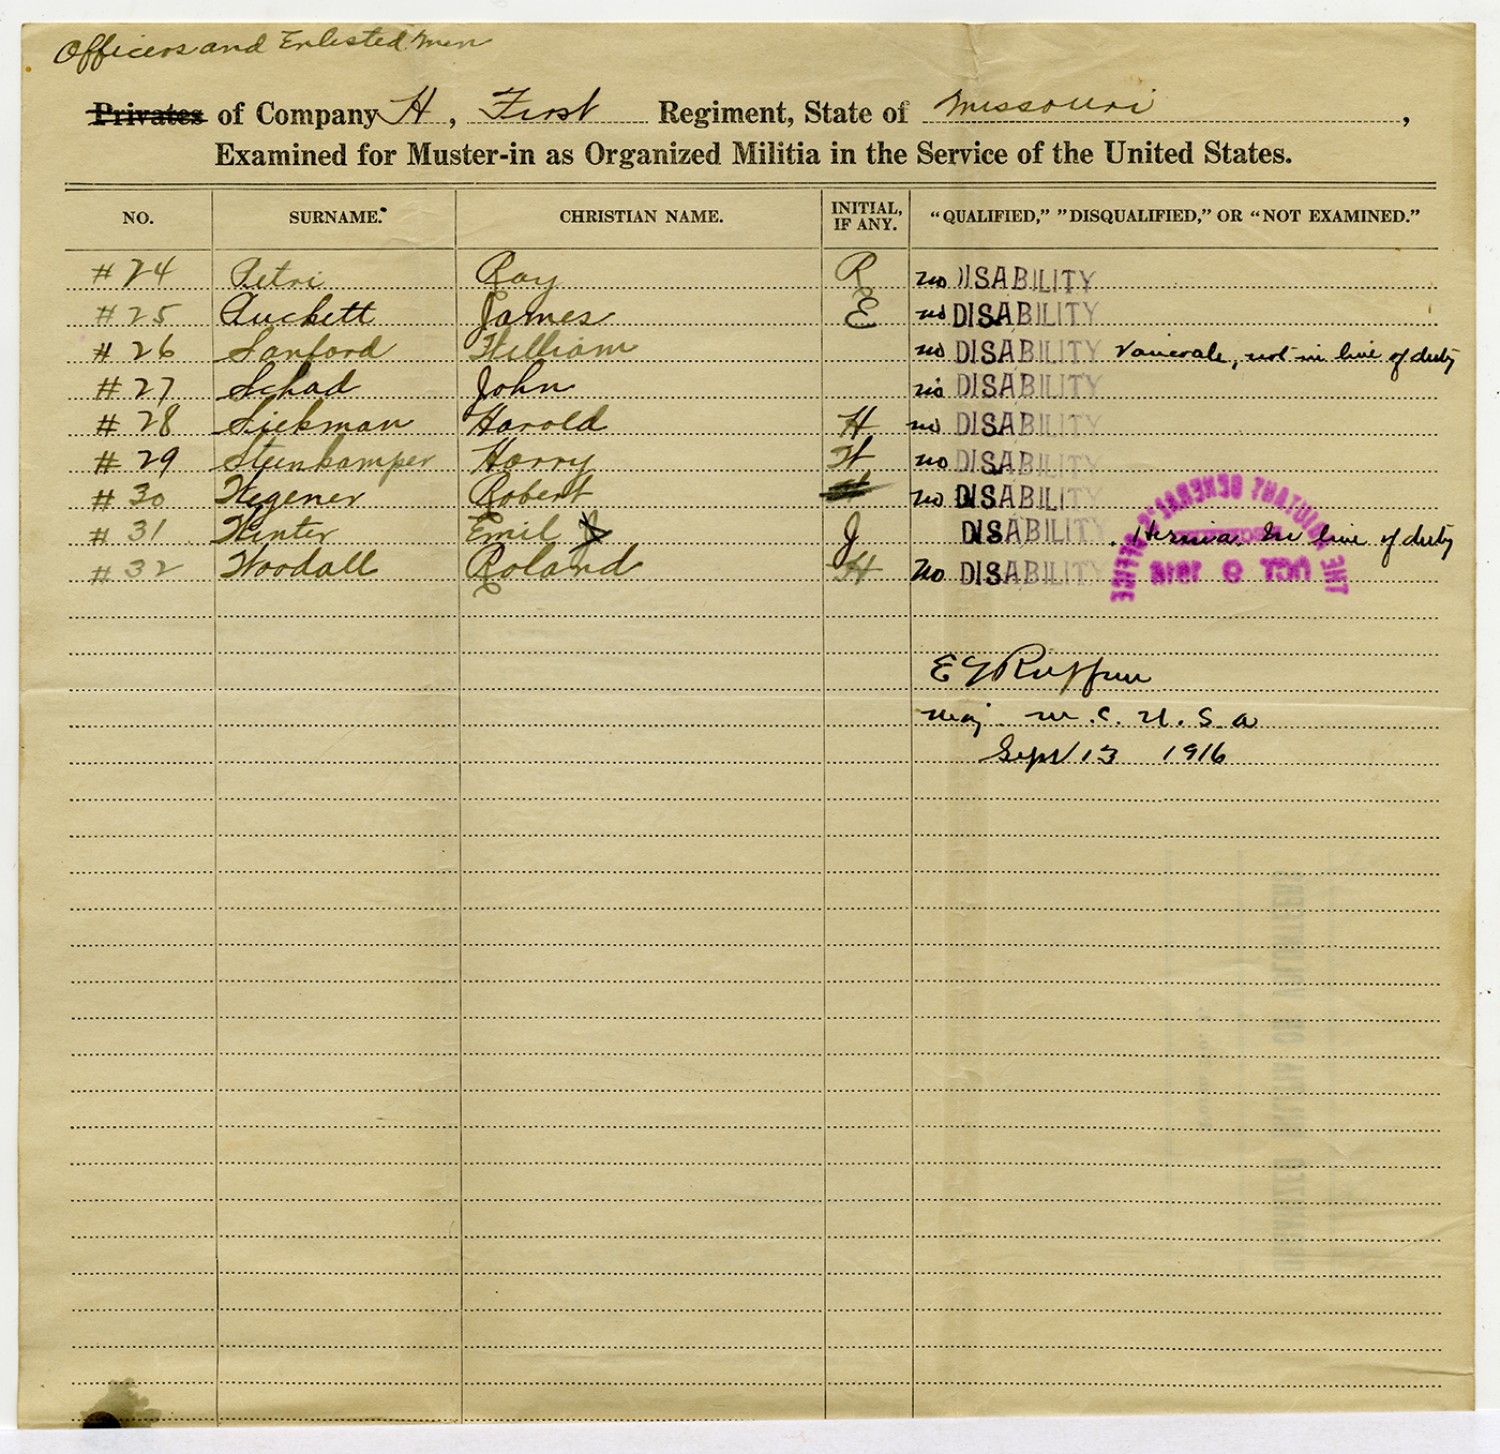 Officers and Enlisted Men
Privates of Company H, First Regiment, State of Missouri,
Examined for Muster-in as Organized Militia in the Service of the United States.
NO. SURNAME. CHRISTIAN NAME. INITIAL, IF ANY. "QUALIFIED," "DISQUALIFIED," OR "NOT EXAMINED."
#24 Petri Ray R no DISABILITY
#25 Puckett James E no DISABILITY
#26 Sanford William no DISABILITY Varicocele, not in line of duty
#27 Schad John no DISABILITY
#28 Siekman Harold H no DISABILITY
#29 Steinkamper Harry W no DISABILITY
#30 Wegener Robert no DISABILITY
#31 Winter Emil J DISABILITY. Hernia. In line of duty
#32 Woodall Roland H No DISABILITY
THE ADJUTANT GENERAL'S OFFICE
OCT 9 1916
E G Ruffner
Maj. M. C. U. S. A
Sept 13 1916